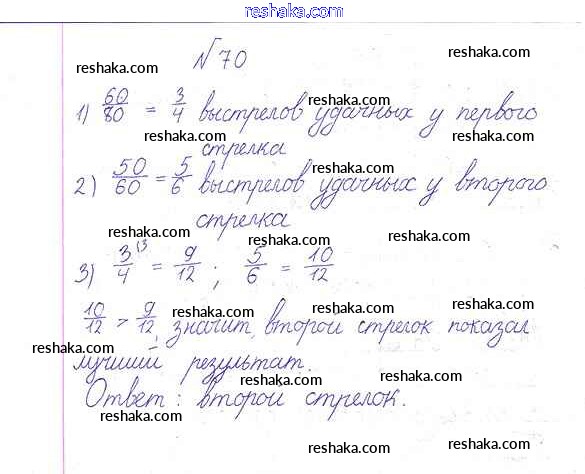 reshaka.com
№ 70
reshaka.com reshaka.com
1) 60/80 = 3/4 выстрелов удачных у первого
reshaka.com
reshaka.com reshaka.com
стрелка
2) 50/60 = 5/6 выстрелов удачных у второго
reshaka.com reshaka.com
стрелка
reshaka.com reshaka.com
reshaka.com
3) 3/4 (3 = 9/12 ; 5/6 = 10/12
reshaka.com
reshaka.com reshaka.com
10/12 > 9/12, значит, второй стрелок показал
reshaka.com
лучший результат.
reshaka.com reshaka.com
Ответ: второй стрелок.
reshaka.com
reshaka.com reshaka.com